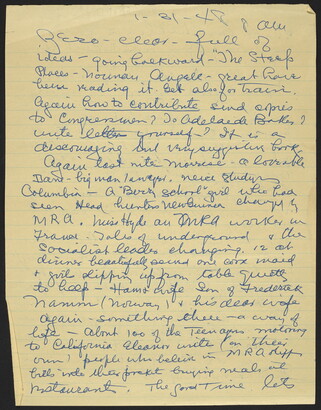 1-31-48 8 am
Zero - clear - full of
ideas - going backward - "The Steep
Places - Norman Angell - great have
been reading it. Get also for train.
Again how to contribute send copies
to Congressmen? To Adelaide
write letters yourself? It is a
discouraging but very suggestive book
Again last nite Morrise - a lovable
big man lawyer. niece studying
Columbia - A "Birch School" girl who had
seen Head hunters New Guinea changed by
M.R.A. Miss Hyde an MRA worker in
France - Tales of underground & the
Socialist leader changing. 12 at
dinner beautifully served on one maid
& girls slipping up from table quietly
to help - Hamo wife Son of Frederick
Ramm (Norway) & his dear wife
Again - something there - a way of
life - about 100 of the Teen agers motoring
to California Eleanor write (on their
own) people who believe in MRA
bills into their pocket buying meals at
restaurants. The good Time lets